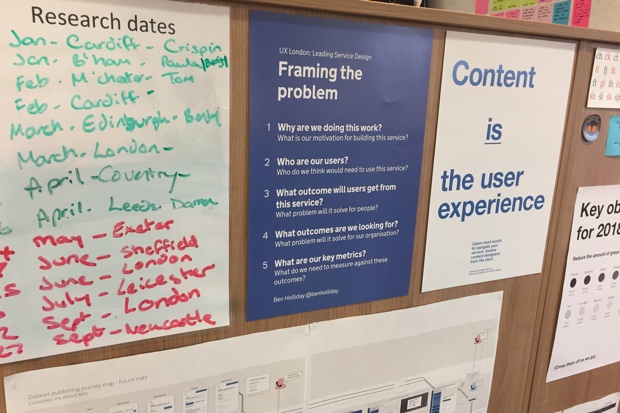 Research dates
Jan - Cardiff - Crispin
Jan - B'ham - Paula/Benji
Feb - M'chester - Tom
Feb - Cardiff -
March - Edinburgh - Benji
March - London -
April - Coventry -
April - Leeds - Damon
May - Exeter
June - Sheffield
June - London
July - Leicester
Sept - London
27 Sept - Newcastle
UX London: Leading Service Design
Framing the
problem
1 Why are we doing this work?
What is our motivation for building this service?
2 Who are our users?
Who do we think would need to use this service?
3 What outcome will users get from
this service?
What problem will it solve for people?
4 What outcomes are we looking for?
What problem will it solve for our organisation?
5 What are our key metrics?
What do we need to measure against these
outcomes?
Ben Holliday @benholliday
Content
is
the user
experience
Users need words
to navigate
your service.
Involve
content designers
from the start.
Key ob
for 2018
Reduce the amount of
(Cross them off as we go!)
Dataset publishing journey map - future state